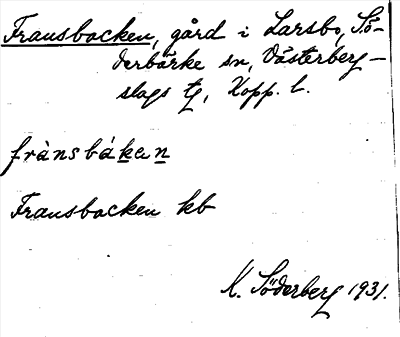 Fransbacken, gård i Larsbo, Sö-
derbärke sn, Västerberg-
slags tg, Kopp. l.
frànsbáken
Fransbacken kb
K. Söderberg 1931.